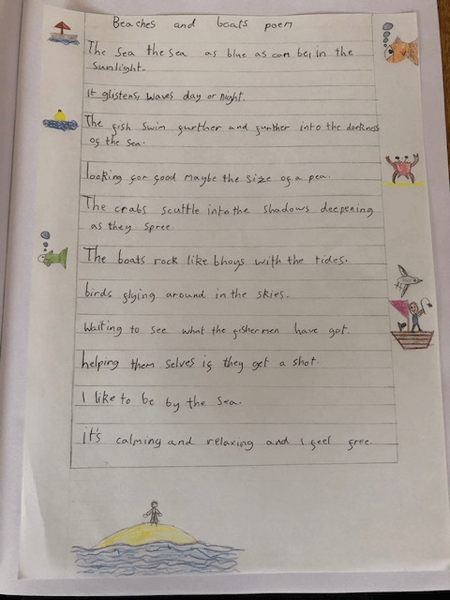 Beaches and boats poem
The sea the sea as blue as can be, in the
sunlight.
it glistens, waves day or night.
The fish swim further and further into the darkness
of the sea.
looking for food maybe the size of a pea.
The crabs scuttle into the shadows deepening
as they spree
The boats rock like bhoys with the tides.
birds flying around in the skies.
waiting to see what the fisher men have got.
helping them selves if they get a shot.
I like to be by the sea.
it's calming and relaxing and I feel free.